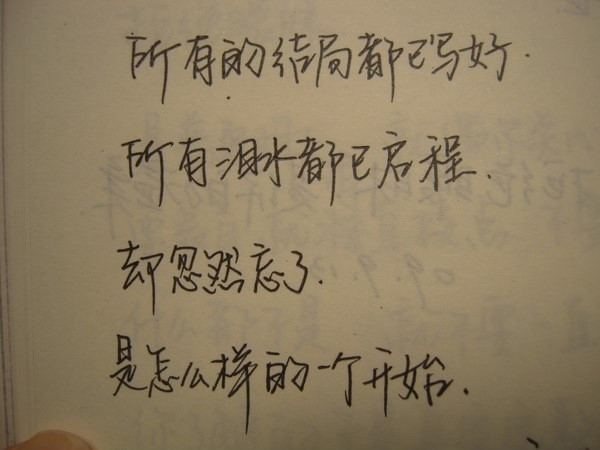 所有的结局都已写好.
所有泪水都已启程.
却忽然忘了.
是怎么样的一个开始.